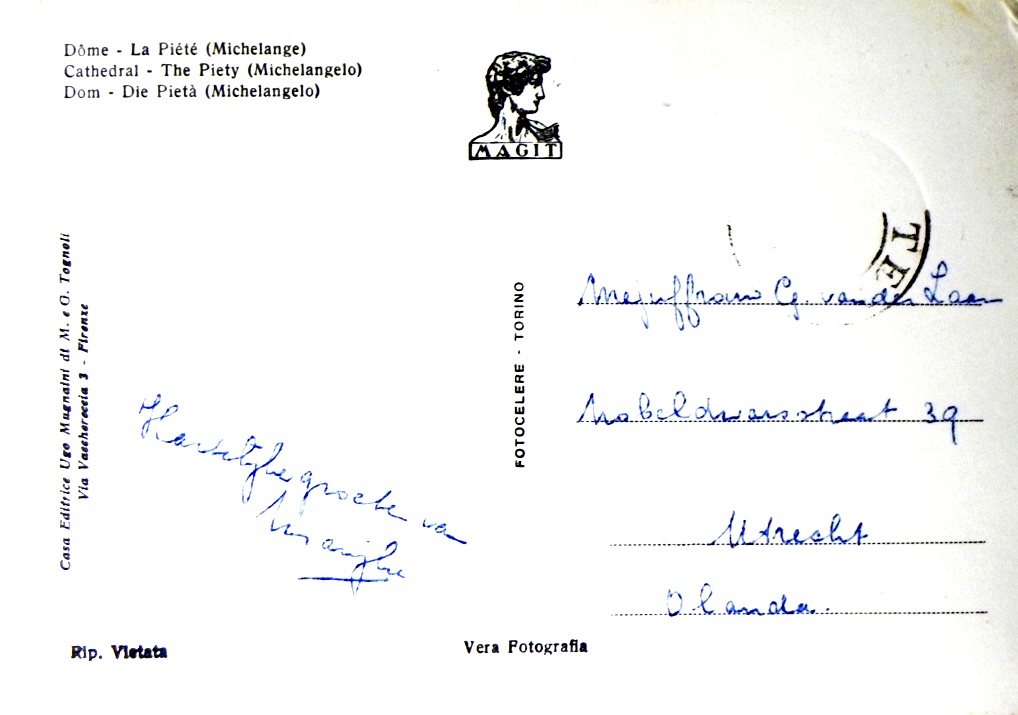 Dôme - La Piété (Michelange)
Cathedral - The Piety (Michelangelo)
Dom - Die Pietà (Michelangelo)
MAGIT
Casa Editrice Ugo Mugnaini di M. e G. Tognoli
Via Vacchereccia 3 - Firenze
FOTOCELERE - TORINO
TE
Mejuffrouw Cg. van der Laan
39
Utrecht
Olanda.
Hartelijke groeten van
Marijke
Rip. Vietata
Vera Fotografia